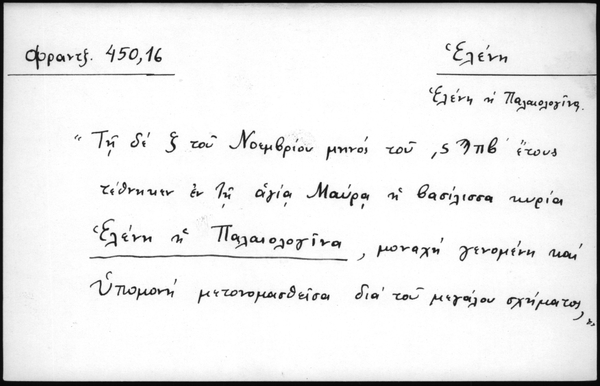 Φραντζ. 450,16
Ἑλένη
Ἑλένη ἡ Παλαιολογῖνα.
"Τῇ δέ ξ τοῦ Νοεμβρίου μηνός τοῦ ,ςϠπβ' ἔτους
τέθνηκεν ἐν τῇ ἁγίᾳ Μαύρᾳ ἡ βασίλισσα κυρία
Ἑλένη ἡ Παλαιολογῖνα, μοναχή γενομένη καί
Ὑπομονή μετονομασθεῖσα διά τοῦ μεγάλου σχήματος,"